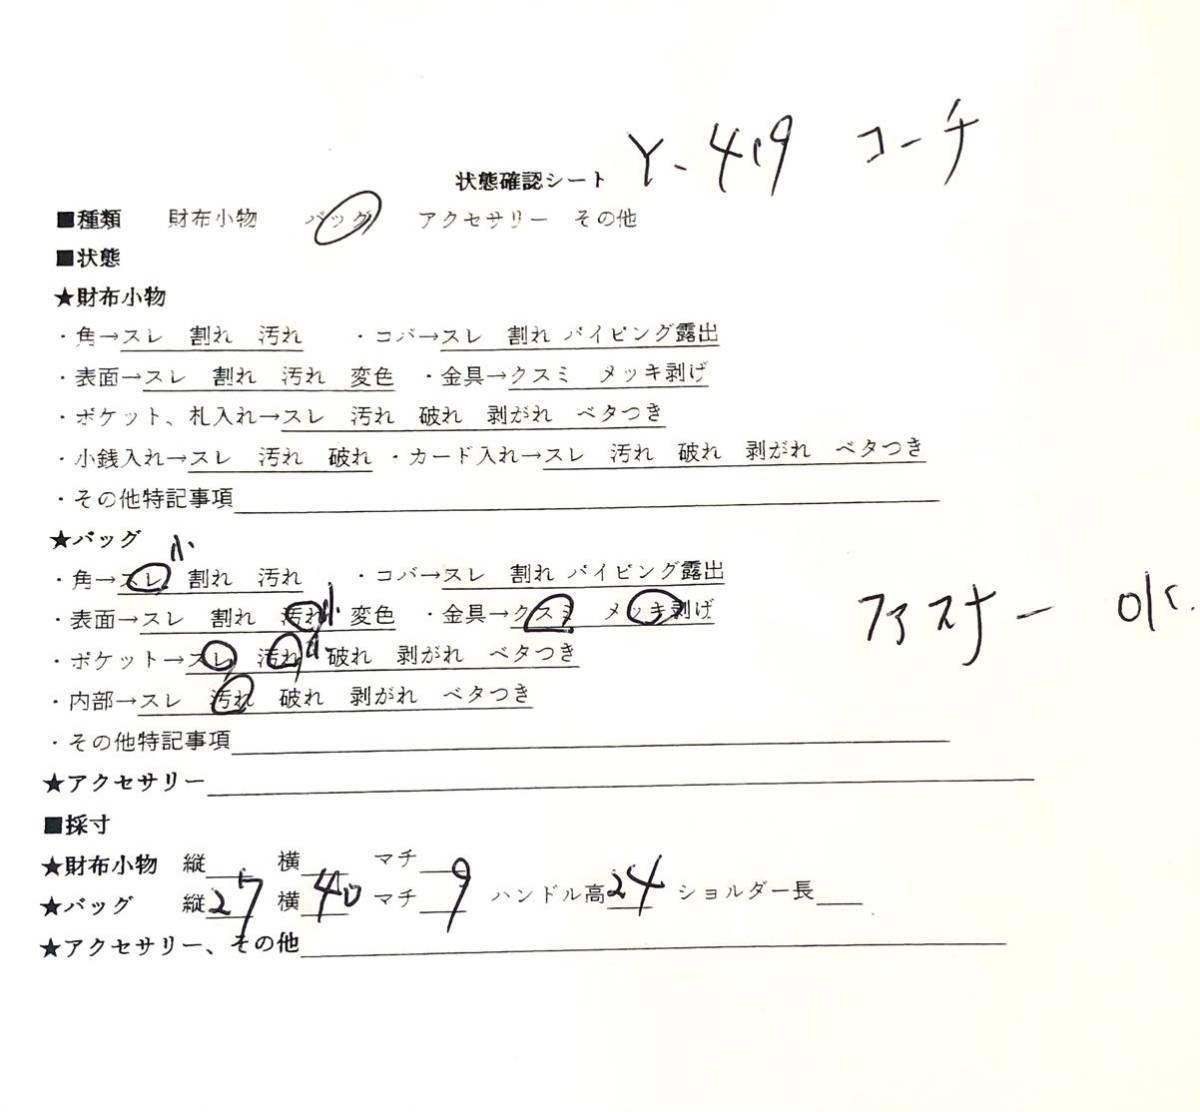 Y-419 コーチ
状態確認シート
■種類 財布小物 バッグ アクセサリー その他
■状態
★財布小物
・角→スレ 割れ 汚れ ・コバ→スレ 割れ パイピング露出
・表面→スレ 割れ 汚れ 変色 ・金具→クスミ メッキ剥げ
・ポケット、札入れ→スレ 汚れ 破れ 剥がれ ベタつき
・小銭入れ→スレ 汚れ 破れ ・カード入れ→スレ 汚れ 破れ 剥がれ ベタつき
・その他特記事項
★バッグ
小
・角→スレ 割れ 汚れ ・コバ→スレ 割れ パイピング露出
・表面→スレ 割れ 汚れ小 変色 ・金具→クスミ メッキ剥げ ファスナー OK
・ポケット→スレ 汚れ小 破れ 剥がれ ベタつき
・内部→スレ 汚れ 破れ 剥がれ ベタつき
・その他特記事項
★アクセサリー
■採寸
★財布小物 縦 横 マチ
★バッグ 縦27 横40 マチ9 ハンドル高24 ショルダー長
★アクセサリー、その他